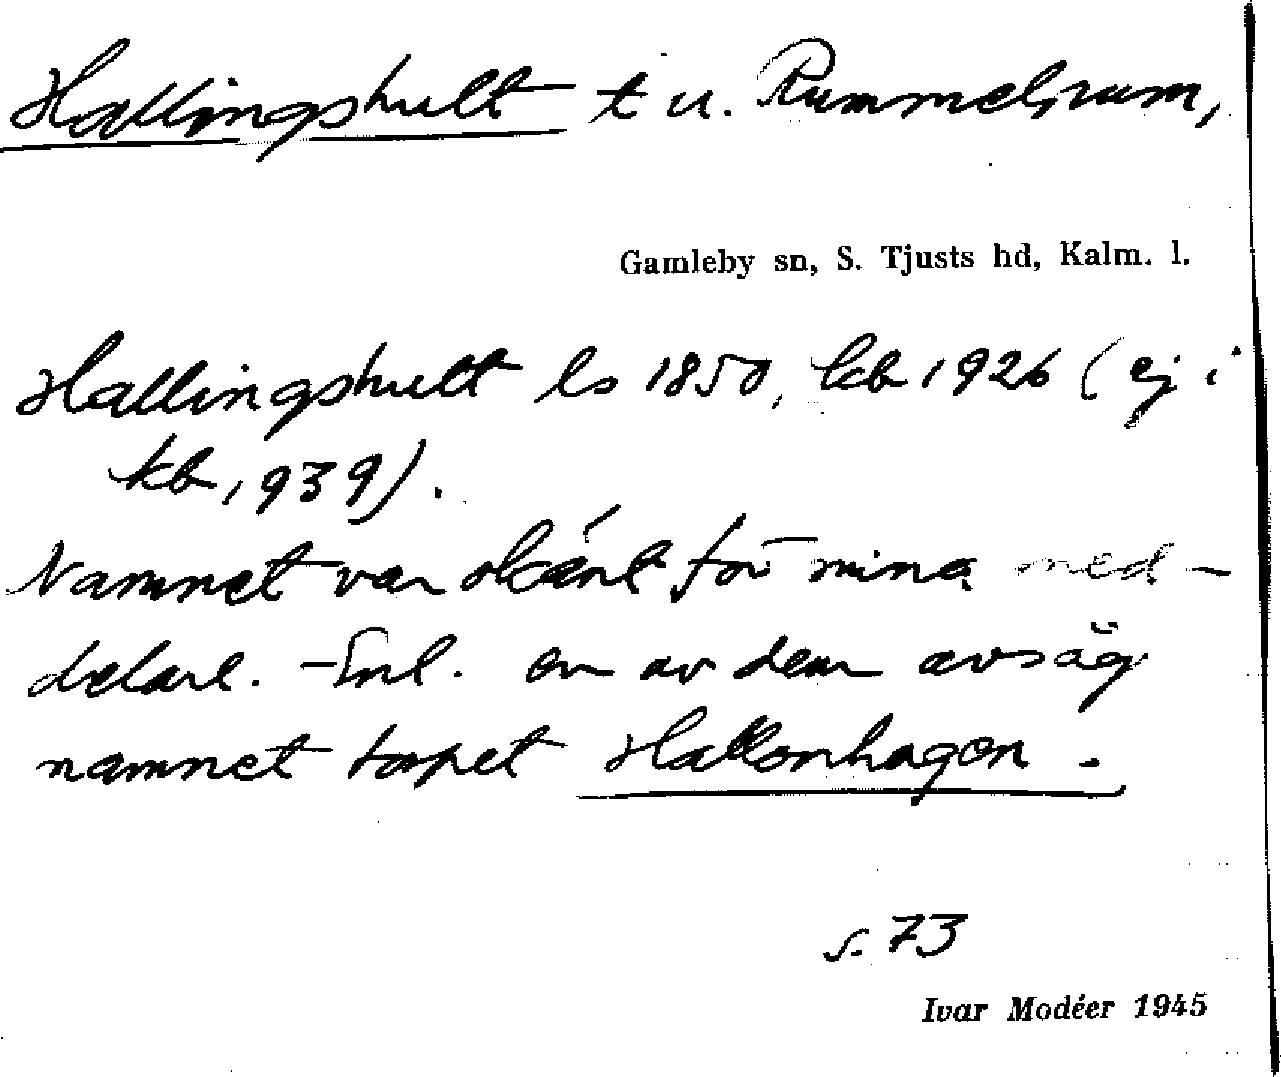 Hallingshult t u. Rummelsrum,
Gamleby sn, S. Tjusts hd, Kalm. l.
Hallingshult ls 1850, kb 1926 (ej i
kb 1939).
Namnet var okänt för mina med-
delare. - Enl. en av dem avsåg
namnet torpet Hallonhagen.
s. 73
Ivar Modéer 1945